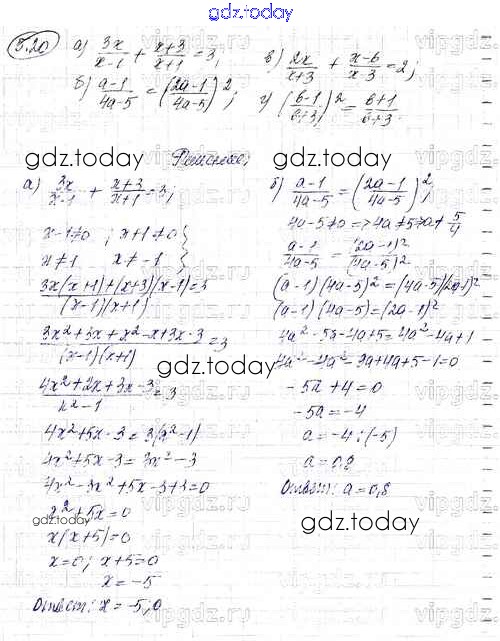 gdz.today
5.20 а) 3x/(x-1) + (x+3)/(x+1) = 3;
б) (a-1)/(4a-5) = ((2a-1)/(4a-5))²;
в) 2x/(x+3) + (x-6)/(x-3) = 2;
г) ((b-1)/(b+3))² = (b+1)/(b+3)
Решение;
а) 3x/(x-1) + (x+3)/(x+1) = 3;
x-1≠0; x+1≠0 }
x≠1 x≠-1 }
(3x(x+1)+(x+3)(x-1))/((x-1)(x+1)) = 3
(3x²+3x+x²-x+3x-3)/((x-1)(x+1)) = 3
(4x²+2x+3x-3)/(x²-1) = 3
4x²+5x-3=3(x²-1)
4x²+5x-3=3x²-3
4x²-3x²+5x-3+3=0
x²+5x=0
x(x+5)=0
x=0; x+5=0
x=-5
Ответ: x=-5;0
б) (a-1)/(4a-5) = ((2a-1)/(4a-5))²;
4a-5≠0 => 4a≠5 => a≠5/4
(a-1)/(4a-5) = (2a-1)²/(4a-5)²
(a-1)(4a-5)²=(4a-5)(2a-1)²
(a-1)(4a-5)=(2a-1)²
4a²-5a-4a+5=4a²-4a+1
4a²-4a²-9a+4a+5-1=0
-5a+4=0
-5a=-4
a=-4:(-5)
a=0,8
Ответ: a=0,8
gdz.today
gdz.today
gdz.today
gdz.today
gdz.today
gdz.today